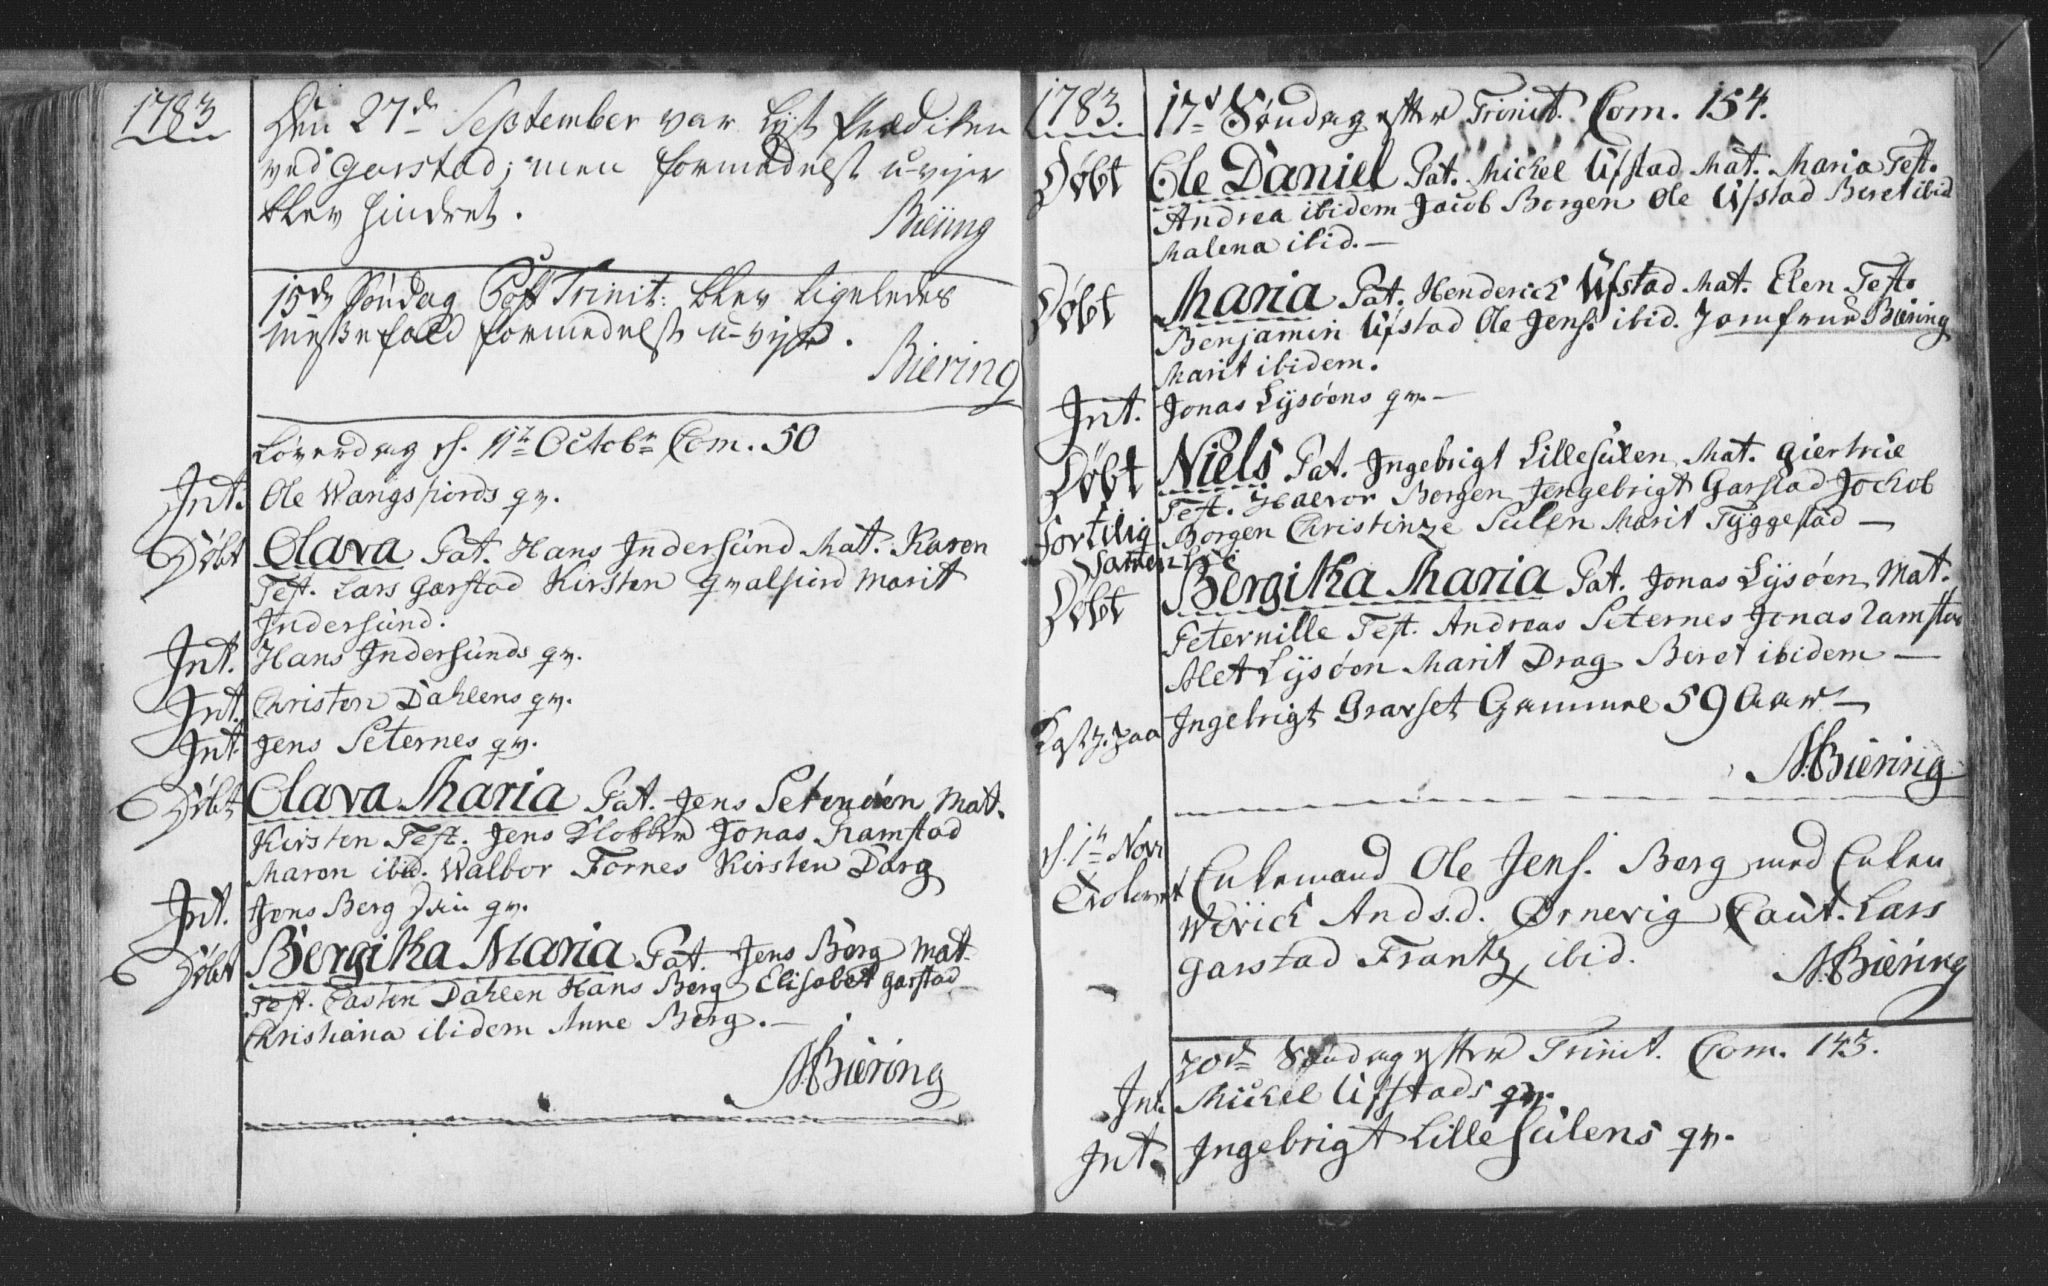 1783
Den 27de September var lyst Prædiken
ved Garstad; men formedelst u-vejr
blev hindret.
Biering
15de Søndag Post Trinit: blev ligeledes
Messefald formedelst u-vejr.
Biering
Løverdag d. 11te Octobr Com. 50
Int. Ole Wangsfiords qv.
Døbt Olava Pat. Hans Indersund Mat. Karen
Test. Lars Garstad Kirsten qvalfiord Marit
Indersund.
Int. Hans Indersunds qv.
Int. Christen Dahlens qv.
Int. Jens Seternes qv.
Døbt Olava Maria Pat. Jens Setenøen Mat.
Kirsten Test. Jens Klokker Jonas Ramstad
Maren ibid. Walbor Fornes Kirsten Darg
Int. Jens Berg qv.
Døbt Bergitha Maria Pat. Jens Berg Mat.
Test. Casten Dahlen Hans Berg Elisabet Garstad
Christiana ibidem Anne Berg.
M. Biering
1783. 17de Søndag efter Trinit. Com. 154.
Døbt Ole Daniel Pat. Michel Ufstad Mat. Maria Test.
Andrea ibidem Jacob Borgen Ole Ufstad Beret ibid
Malena ibid.
Døbt Maria Pat. Henderich Ufstad Mat. Elen Test.
Benjamin Ufstad Ole Jens. ibid. Jomfrue Biering
Marit ibidem.
Int. Jonas Lysøens qv.
Døbt Niels Pat. Ingebrigt Lillesulen Mat. giertrue
Test. Halvor Borgen Jengebrigt Garstad Jochob
Fortilig Borgen Christinæ Sulen Marit Tyggestad
Samenleie
Døbt Bergitha Maria Pat. Jonas Lysøen Mat.
Peternille Test. Andreas Seternes Jonas Ramstad
Alet Lysøen Marit Drag Beret ibidem
Kast. J. paa Ingebrigt Gravset Gammel 59 Aar
M. Biering
d. 1te Novr Enkemand Ole Jens. Berg med Enken
Trolovet Werich Ands.d. Ørnevig Caut. Lars
Garstad Frantz ibid.
M. Biering
20de Søndag efter Trinit. Com. 143.
Int. Michel Ufstads qv.
Int. Ingebrigt Lillesulens qv.